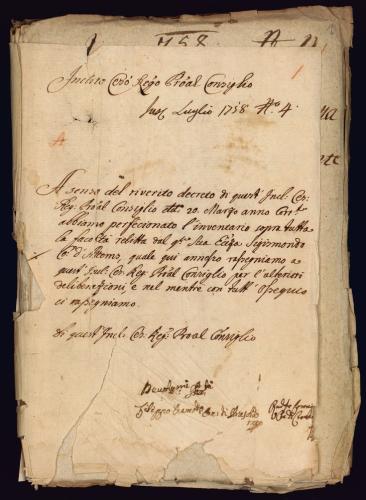 1758
Inclito Ces.o Reg.o Pro.al Consiglio
Luglio 1758 N.o 4.
A senso del riverito decreto di quest' Incl: Ces:
Reg: Pro.al Consiglio dtt. 20. Marzo anno Corr.t
abbiamo perfecionato l'inventario sopra tutta
la facoltà relitta dal q.m Sua Ecc.za Sigismondo
Co: d'Attems, quale qui annesso rassegniamo a
quest' Incl: Ces: Reg: Pro.al Consiglio per l'ulteriori
deliberazioni, e nel mentre con tutt' Ossequio
ci rassegniamo.
di quest' Incl: Ces: Reg: Pro.al Consiglio